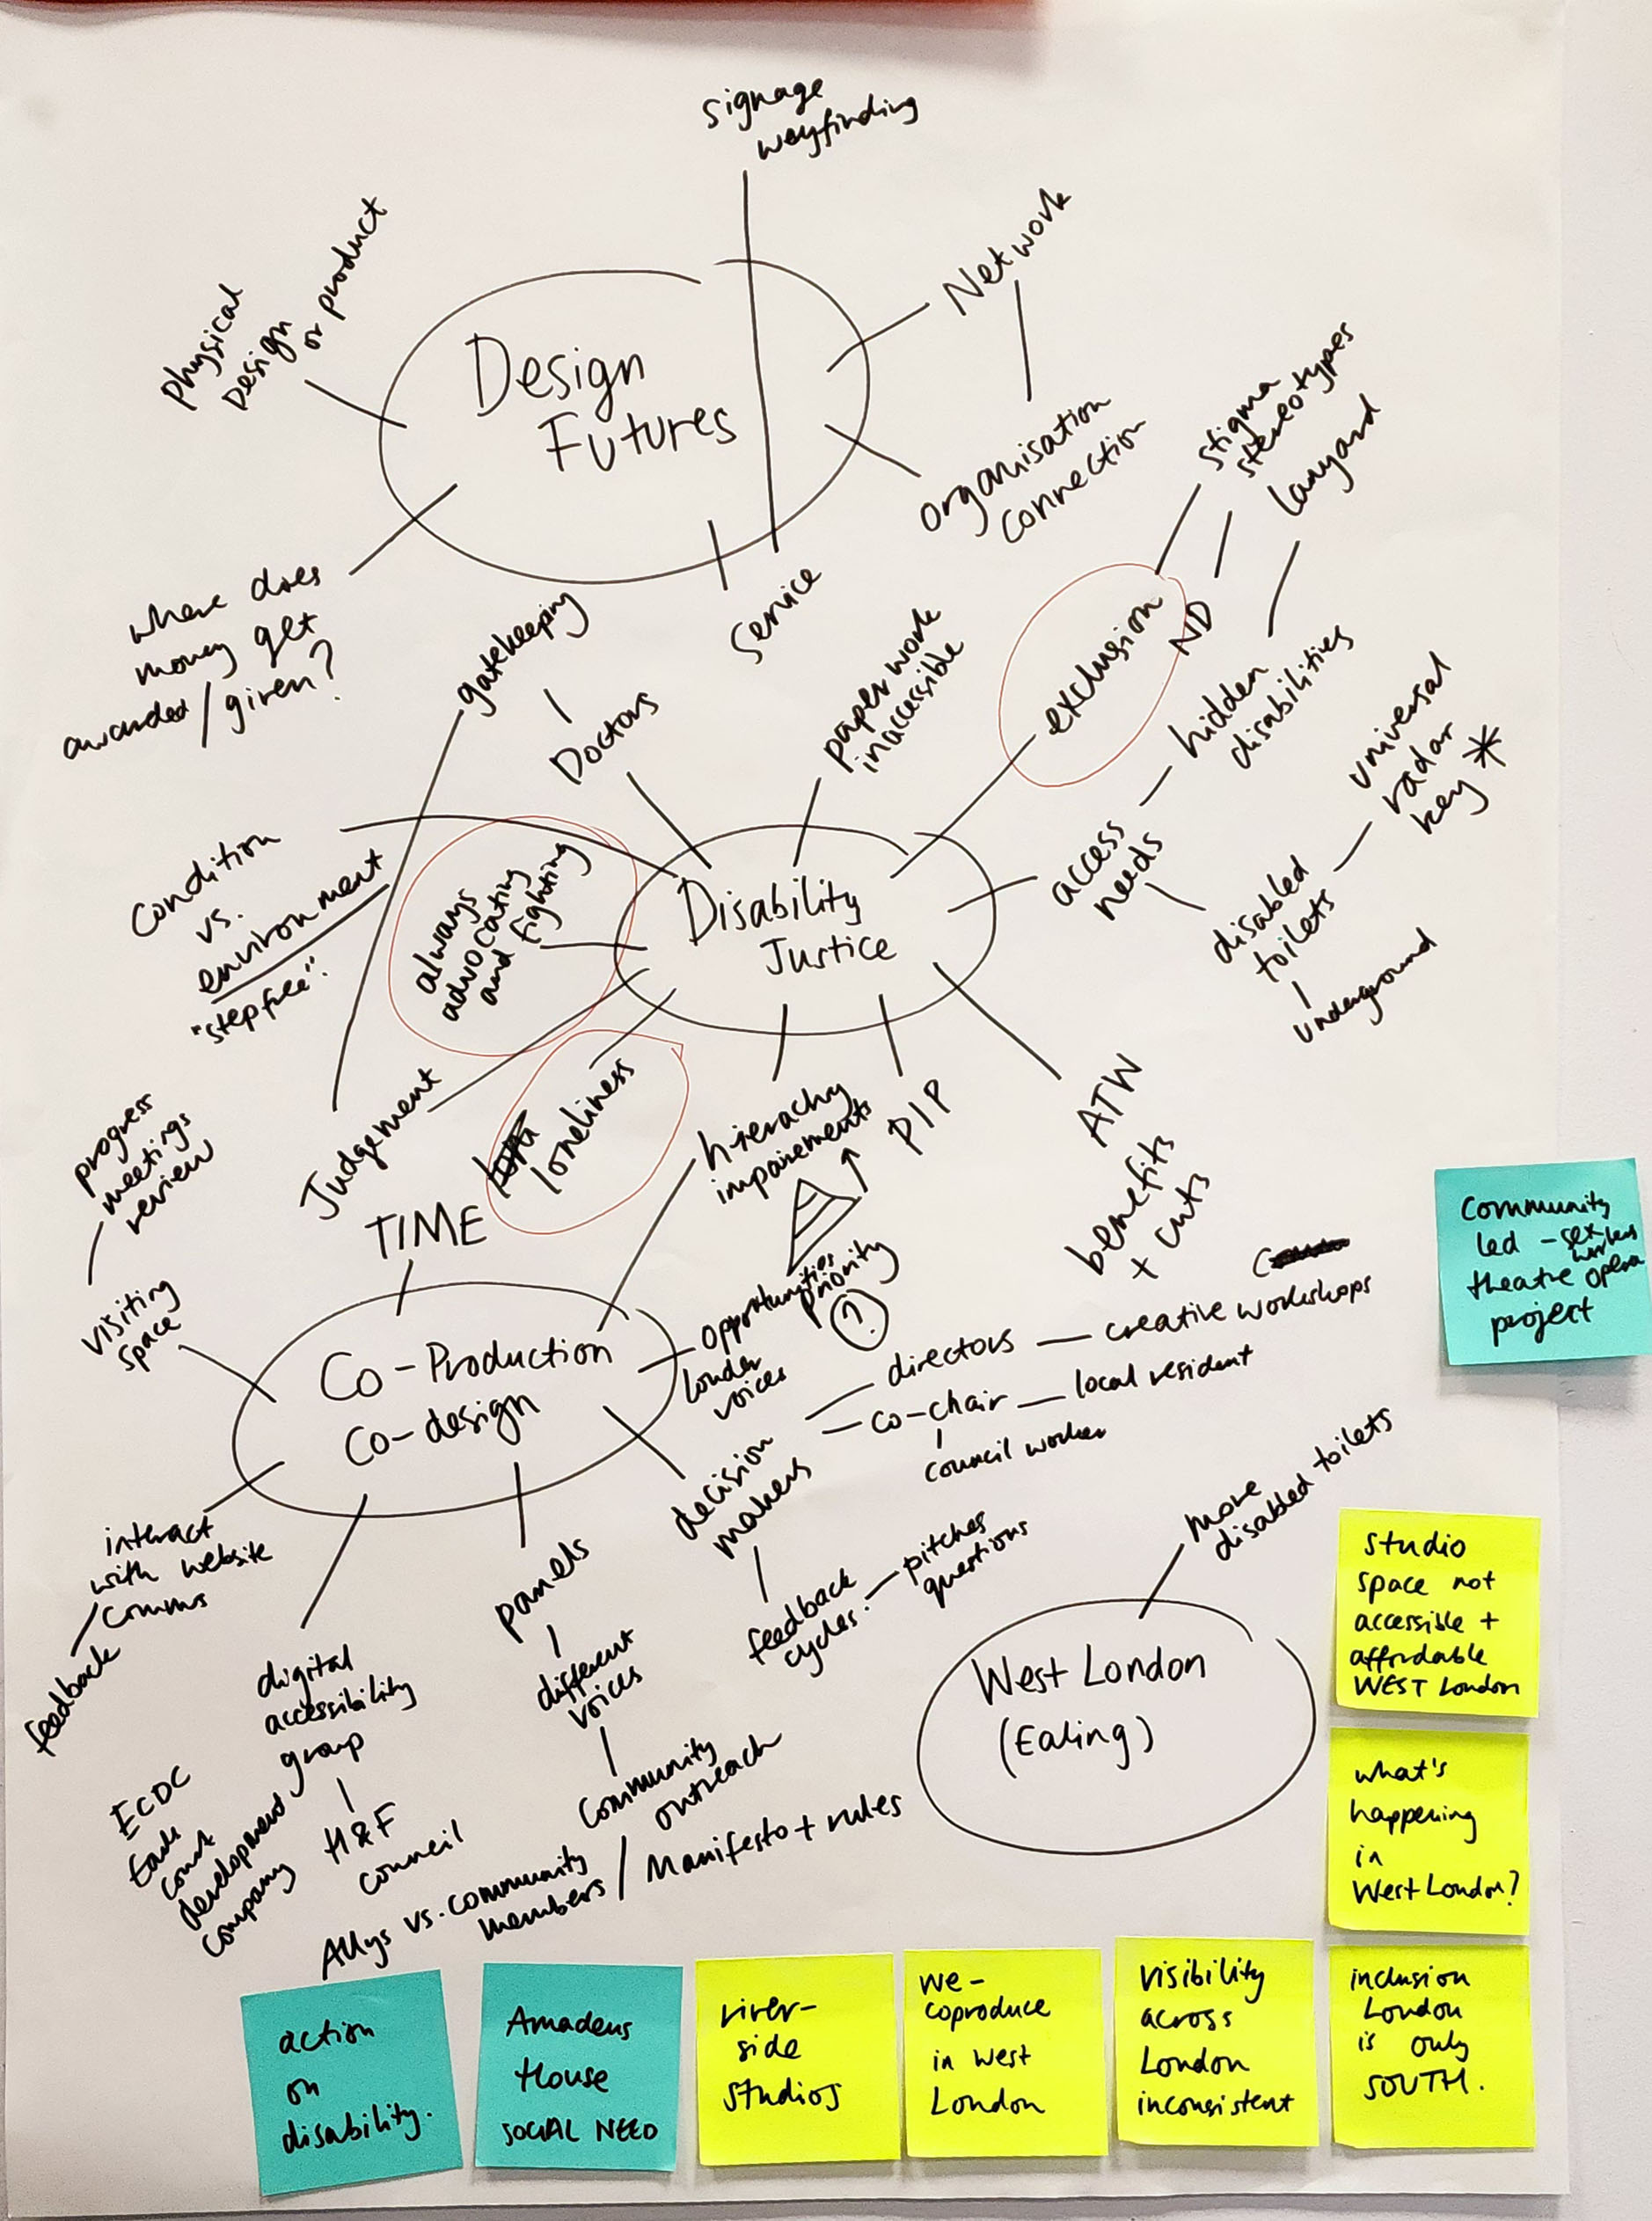 signage
wayfinding
Network
physical
Design
or product
Design
Futures
organisation
connection
stigma
stereotypes
lanyard
where does
money get
awarded/given?
service
gatekeeping
Doctors
paper work
inaccessible
exclusion
ND
hidden
disabilities
universal
radar
key *
access
needs
disabled
toilets
underground
condition
vs.
environment
"stepfree".
always
advocating
and fighting
Disability
Justice
Judgement
loneliness
hierachy
impairements
PIP
ATW
benefits
+ cuts
progress
meetings
review
visiting
space
TIME
Co-Production
Co-design
opportunities
priority
?
louder
voices
directors — creative workshops
co-chair — local resident
council worker
decision
makers
feedback
cycles.
pitches
questions
interact
with website
comms
feedback
digital
accessibility
group
H&F
council
ECDC
Earls
court
development
company
panels
different
voices
community
outreach
Allys vs. community
members / Manifesto + rules
more
disabled toilets
West London
(Ealing)
community
led - sex workers
theatre opera
project
studio
space not
accessible +
affordable
WEST London
what's
happening
in
West London?
action
on
disability.
Amadeus
House
SOCIAL NEED
river-
side
studios
we-
coproduce
in west
London
visibility
across
London
inconsistent
inclusion
London
is only
SOUTH.